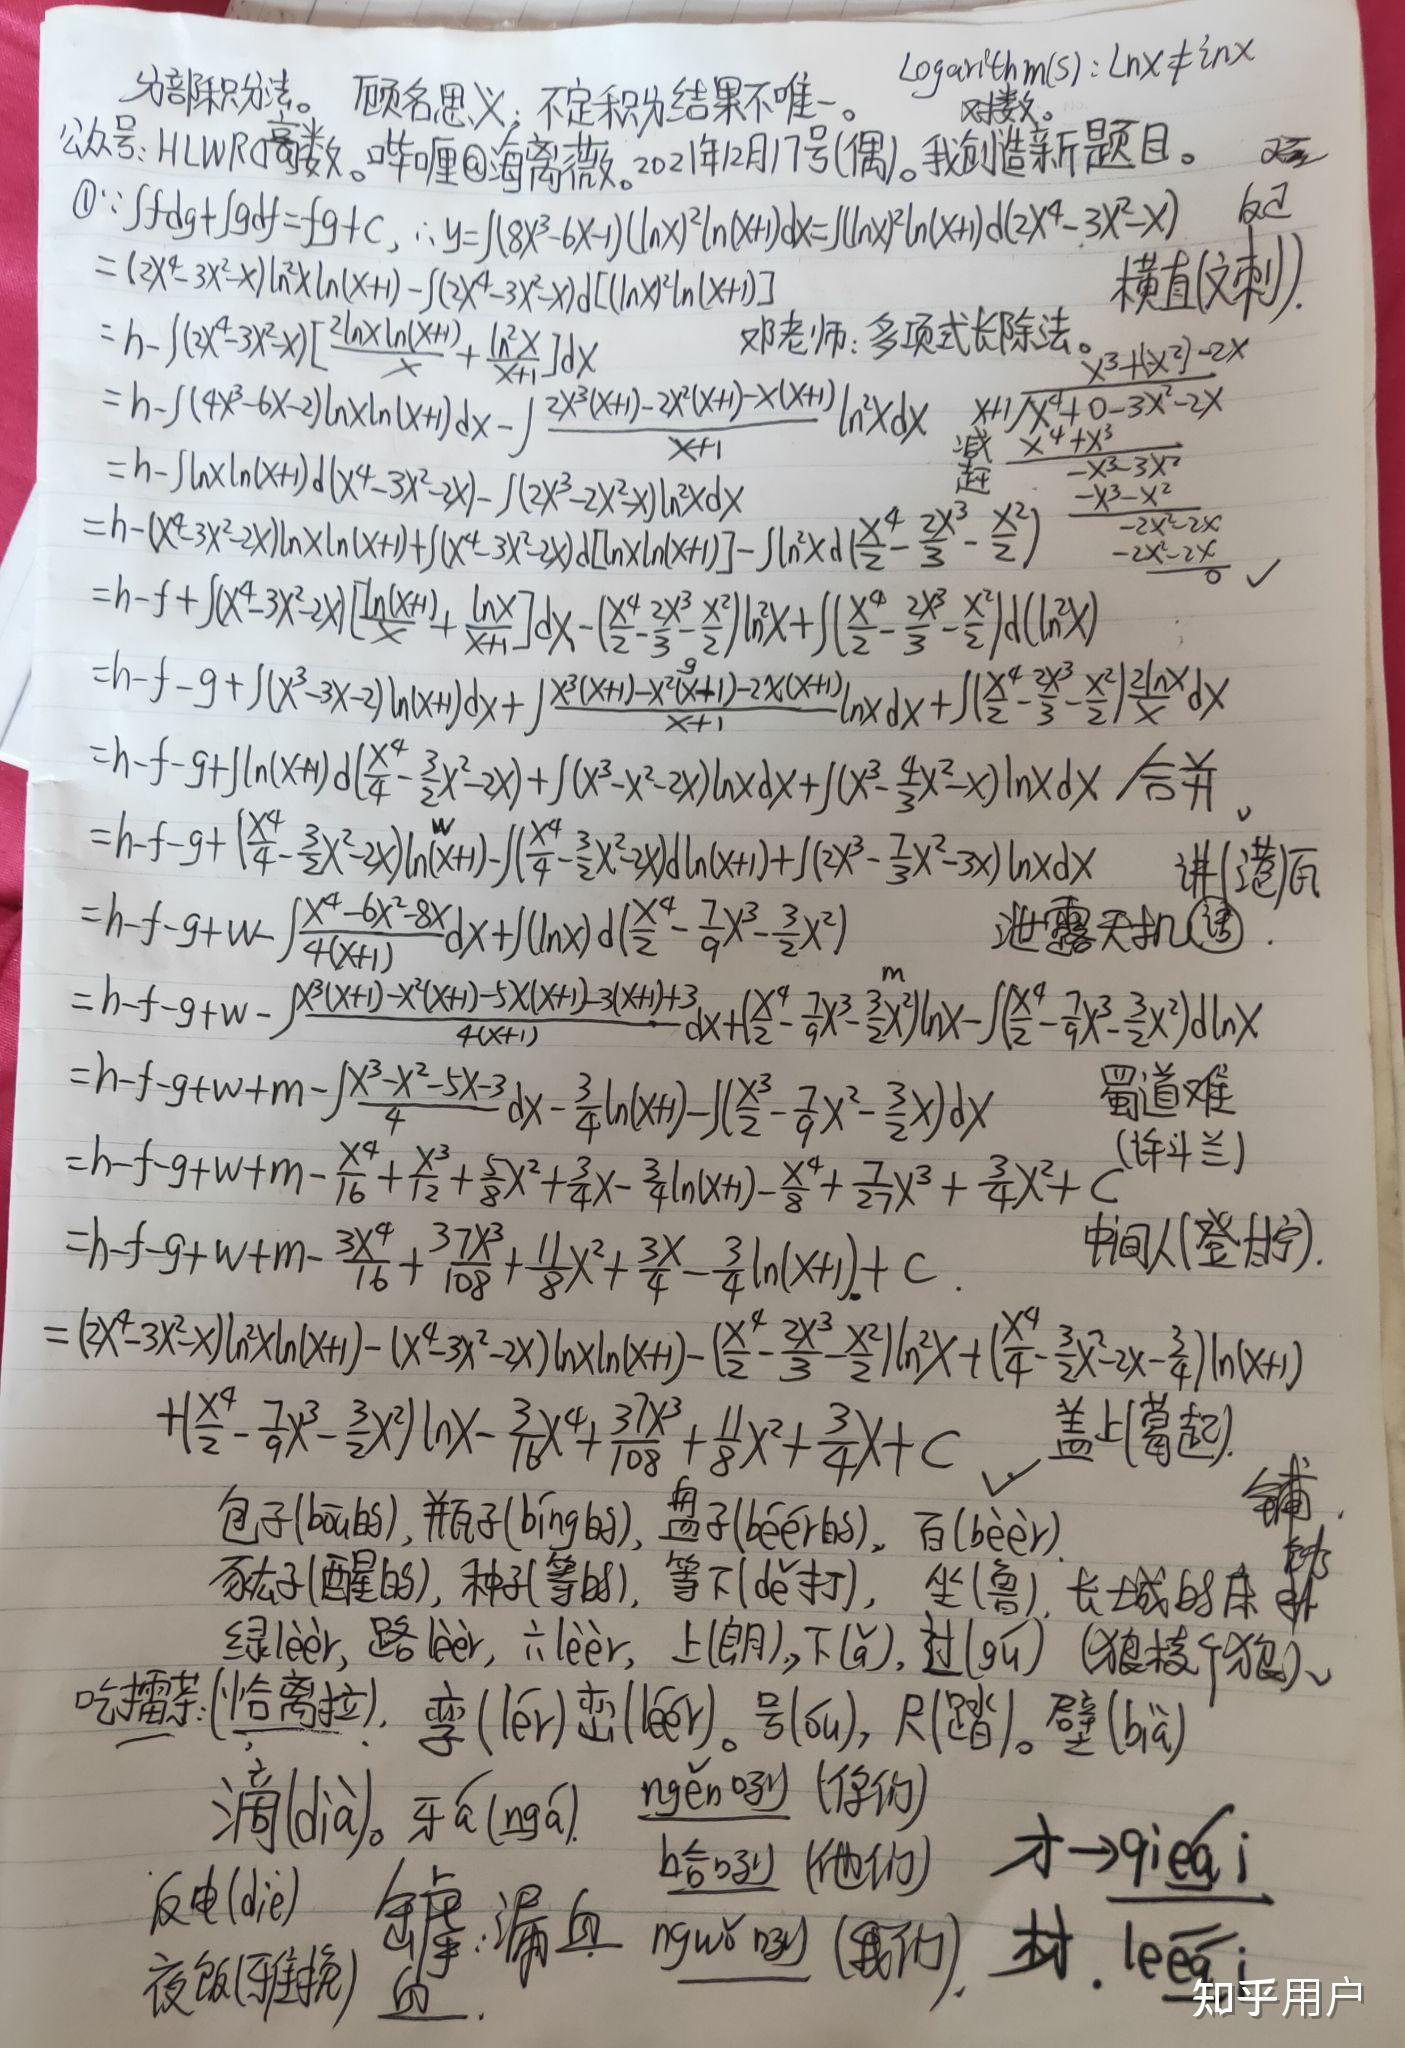 Logarithm(s): Lnx≠inx
分部积分法。 顾名思义；不定积分结果不唯一。 对数。
公众号: HLWRC高数。哔哩@海离薇。2021年12月17号(偶)。我创造新题目。
①∵∫fdg+∫gdf=fg+C, ∴y=∫(8x³-6x-1)(lnx)²ln(x+1)dx=∫(lnx)²ln(x+1)d(2x⁴-3x²-x)
=(2x⁴-3x²-x)ln²xln(x+1)-∫(2x⁴-3x²-x)d[(lnx)²ln(x+1)] 横直(文刺).
=h-∫(2x⁴-3x²-x)[2lnxln(x+1)/x+ln²x/x+1]dx 邓老师:多项式长除法。
x³+(-x²)-2x
=h-∫(4x³-6x-2)lnxln(x+1)dx-∫2x³(x+1)-2x²(x+1)-x(x+1)/x+1 ln²xdx x+1√x⁴+0-3x²-2x
减 x⁴+x³
-x³-3x²
=h-∫lnxln(x+1)d(x⁴-3x²-2x)-∫(2x³-2x²-x)ln²xdx -x³-x²
-2x²-2x
=h-(x⁴-3x²-2x)lnxln(x+1)+∫(x⁴-3x²-2x)d[lnxln(x+1)]-∫ln²xd(x⁴/2-2x³/3-x²/2) -2x²-2x
0 ✓
=h-f+∫(x⁴-3x²-2x)[ln(x+1)/x+lnx/x+1]dx-(x⁴/2-2x³/3-x²/2)ln²x+∫(x⁴/2-2x³/3-x²/2)d(ln²x)
g
=h-f-g+∫(x³-3x-2)ln(x+1)dx+∫x³(x+1)-x²(x+1)-2x(x+1)/x+1 lnxdx+∫(x⁴/2-2x³/3-x²/2)2lnx/x dx
=h-f-g+∫ln(x+1)d(x⁴/4-3/2x²-2x)+∫(x³-x²-2x)lnxdx+∫(x³-4/3x²-x)lnxdx /合并
w
=h-f-g+(x⁴/4-3/2x²-2x)ln(x+1)-∫(x⁴/4-3/2x²-2x)dln(x+1)+∫(2x³-7/3x²-3x)lnxdx 讲(港)瓦
=h-f-g+w-∫x⁴-6x²-8x/4(x+1)dx+∫(lnx)d(x⁴/2-7/9x³-3/2x²) 泄露天机
m
=h-f-g+w-∫x³(x+1)-x²(x+1)-5x(x+1)-3(x+1)+3/4(x+1)dx+(x⁴/2-7/9x³-3/2x²)lnx-∫(x⁴/2-7/9x³-3/2x²)dlnx
=h-f-g+w+m-∫x³-x²-5x-3/4 dx-3/4ln(x+1)-∫(x³/2-7/9x²-3/2x)dx 蜀道难
(许斗兰)
=h-f-g+w+m-x⁴/16+x³/12+5/8x²+3/4x-3/4ln(x+1)-x⁴/8+7/27x³+3/4x²+C
=h-f-g+w+m-3x⁴/16+37x³/108+11/8x²+3x/4-3/4ln(x+1)+C. 中间人(登甘宁).
=(2x⁴-3x²-x)ln²xln(x+1)-(x⁴-3x²-2x)lnxln(x+1)-(x⁴/2-2x³/3-x²/2)ln²x+(x⁴/4-3/2x²-2x-3/4)ln(x+1)
+(x⁴/2-7/9x³-3/2x²)lnx-3/16x⁴+37x³/108+11/8x²+3/4x+C ✓ 盖上
包子(bōubs), 瓶子(bíngbs), 盘子(béérbs)、百(bèèr).
种子(等bs), 等下(dě打), 坐(鲁), 长土城bs床
绿lèèr, 路lèèr, 六lèèr, 上(朗), 下(ǎ), 过(gú)
吃擂茶:(恰离拉), 孪(lér)峦(léér)。号(óu), 尺(踏)。壁(bià)
滴(dià)。牙á(ngá). ngěn呀(你们)
h台呀(他们) 才→qieái
反电(diè) 漏血 ngwǒ呀(我们). 材. leéái
夜饭(牙挽) 血.
知乎用户